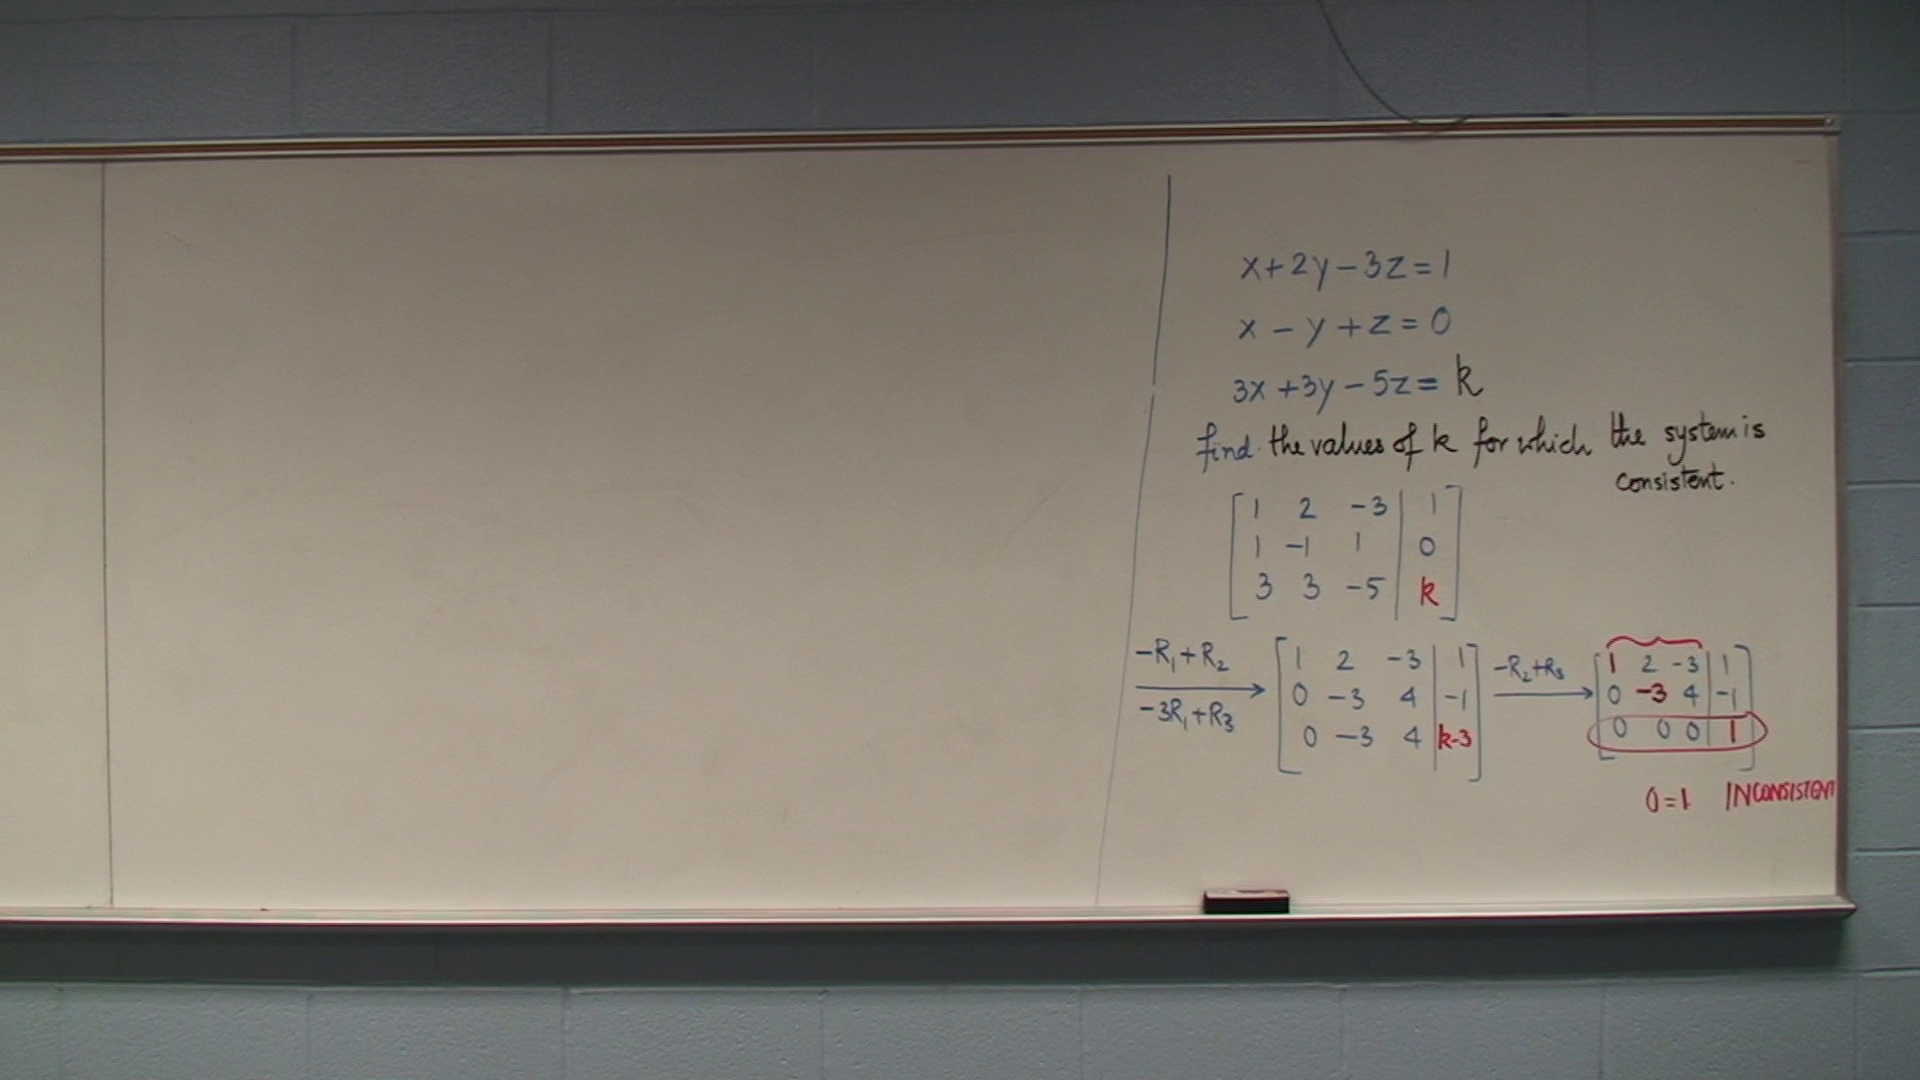 x+2y-3z=1
x-y+z=0
3x+3y-5z=k
find the values of k for which the system is
consistent.
1 2 -3 | 1
1 -1 1 | 0
3 3 -5 | k
-R₁+R₂
-3R₁+R₃
1 2 -3 | 1
0 -3 4 | -1
0 -3 4 | k-3
-R₂+R₃
1 2 -3 | 1
0 -3 4 | -1
0 0 0 | 1
0=1 INCONSISTENT